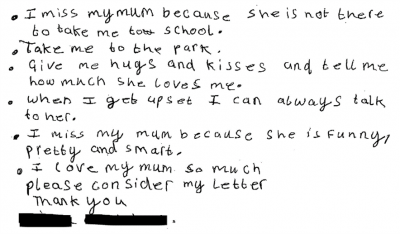 • I miss my mum because she is not there
to take me to school.
• Take me to the park.
• Give me hugs and kisses and tell me
how much she loves me.
• when I get upset I can always talk
to her.
• I miss my mum because she is funny,
pretty and smart.
• I love my mum so much
please consider my letter
Thank you